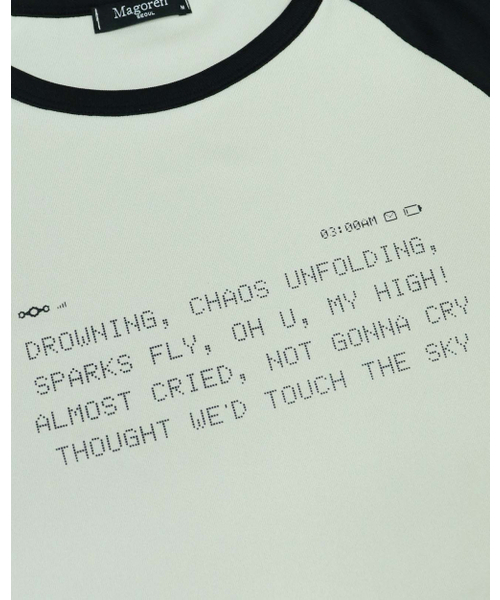 Magoren
SEOUL
M
03:00AM
DROWNING, CHAOS UNFOLDING,
SPARKS FLY, OH U, MY HIGH!
ALMOST CRIED, NOT GONNA CRY
THOUGHT WE'D TOUCH THE SKY